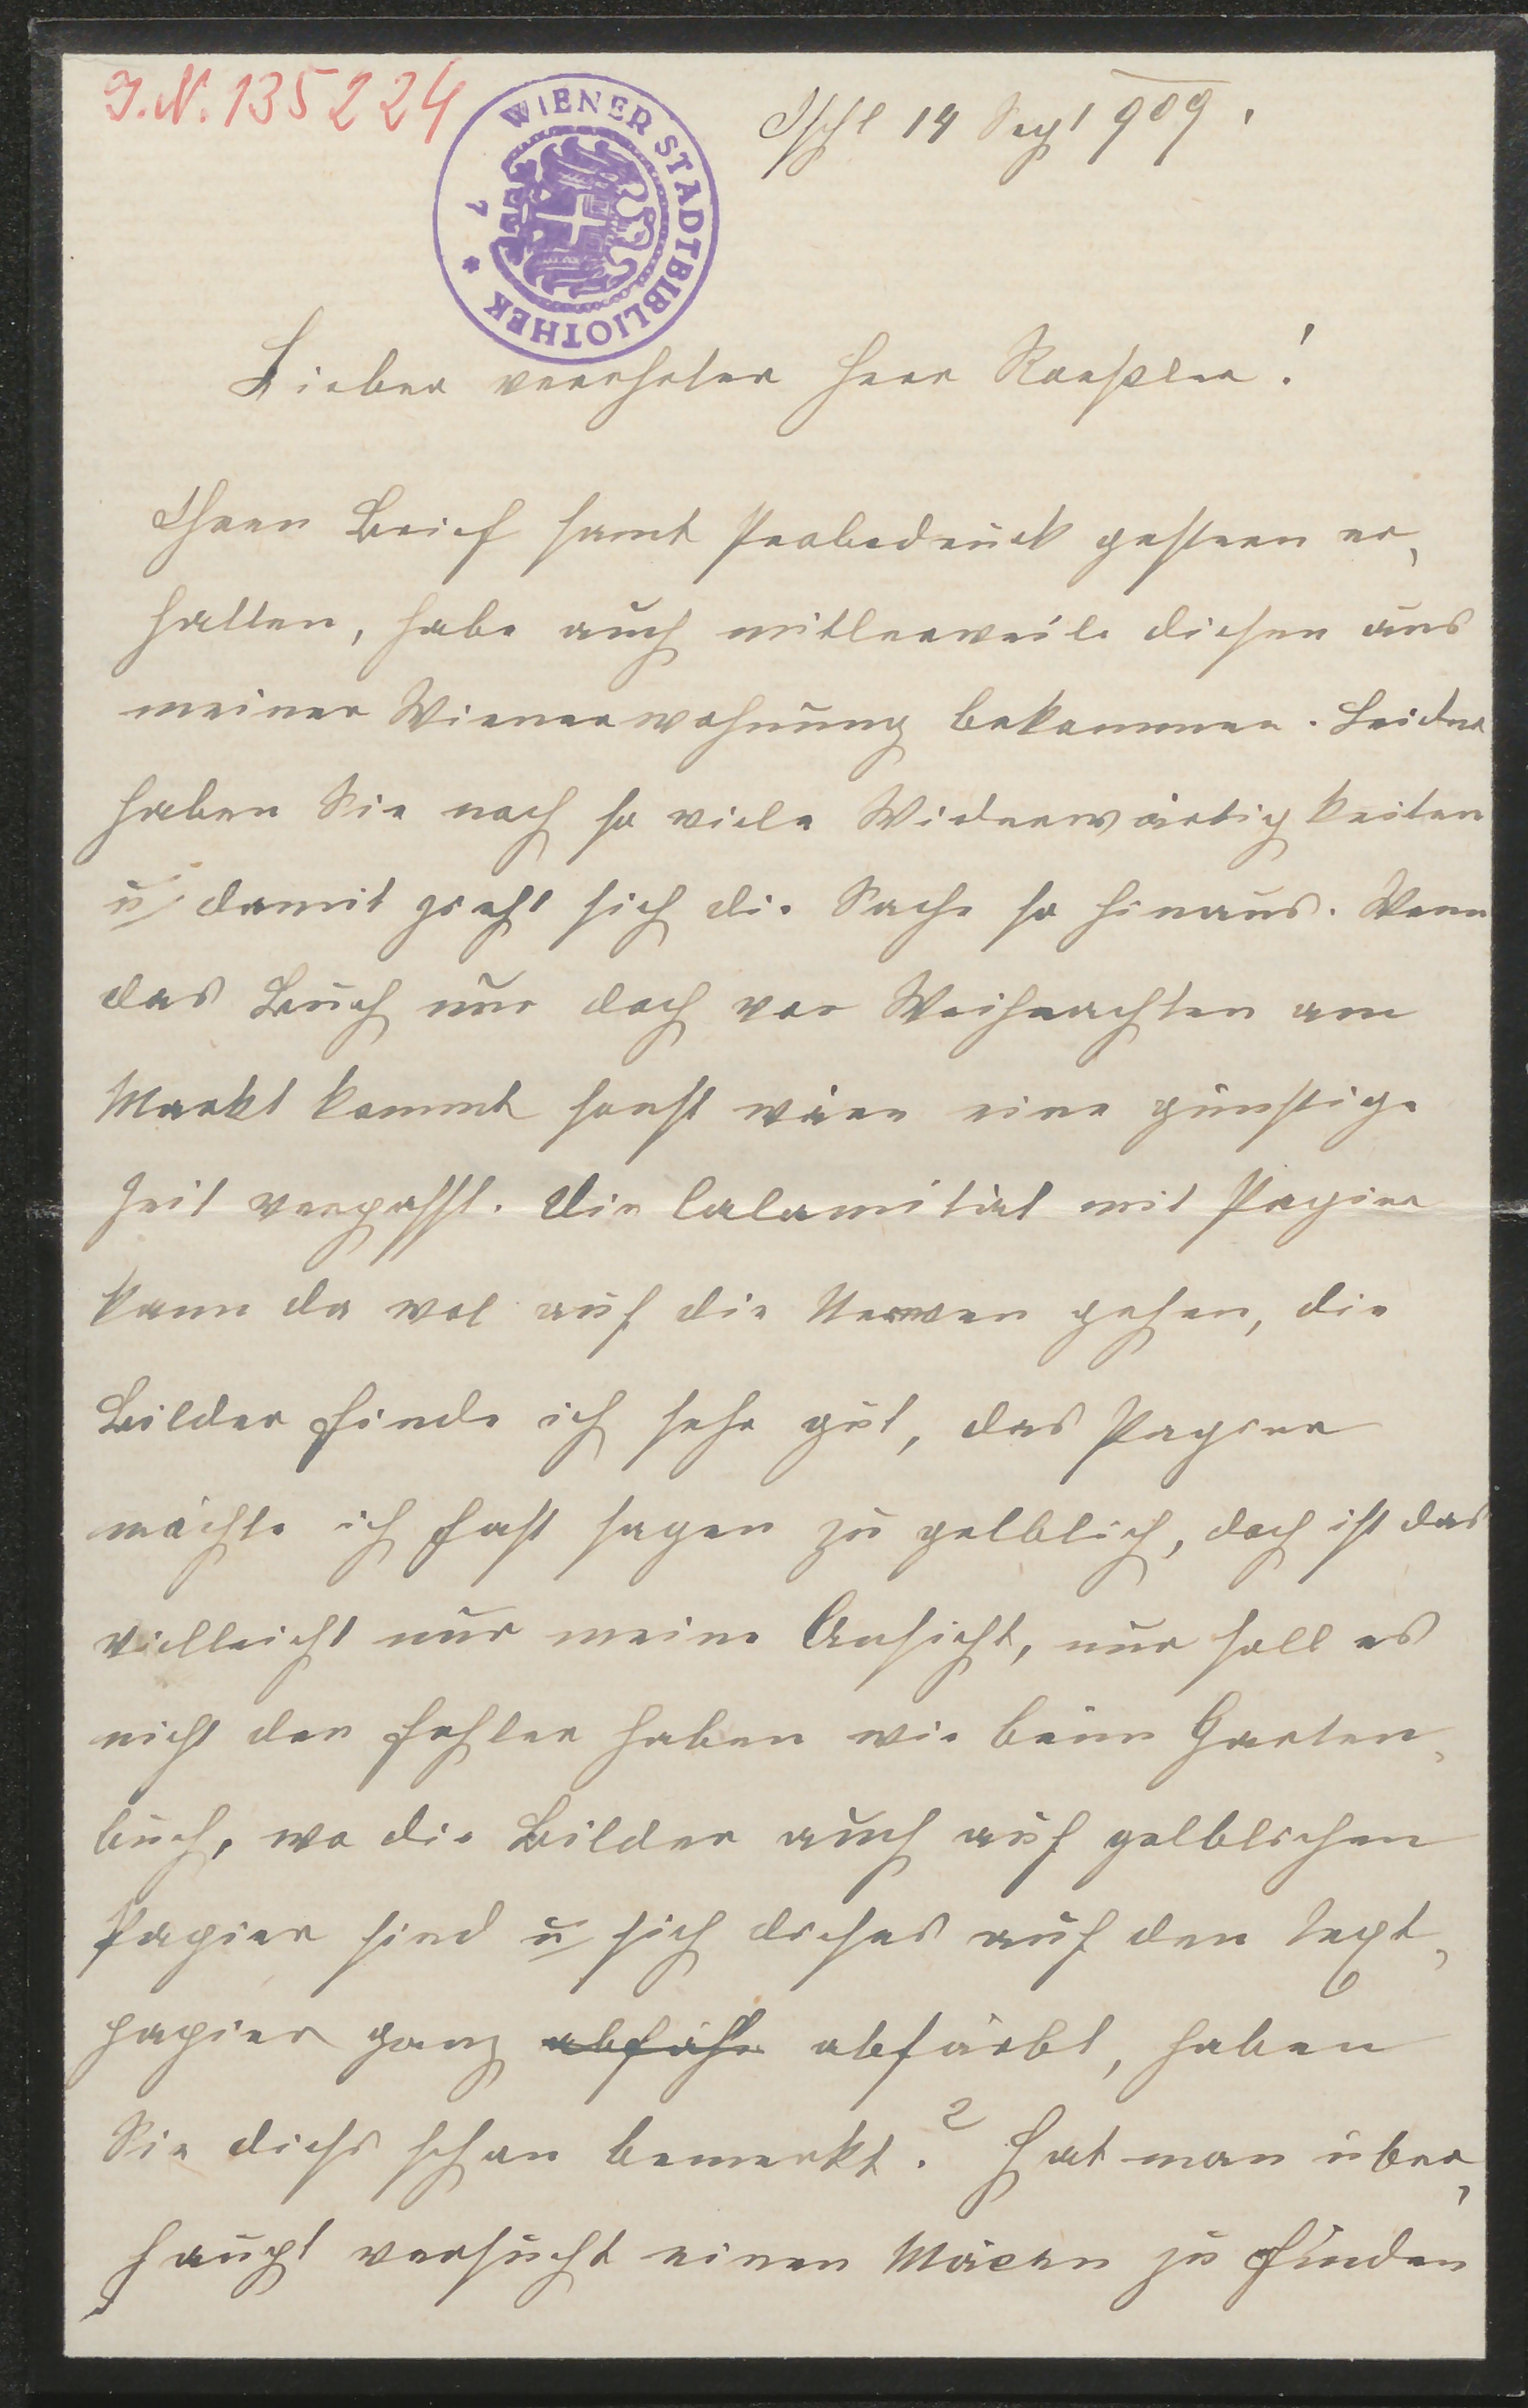 J.N. 135224
WIENER STADTBIBLIOTHEK
7
Ischl 14 Sept 909.
Lieber verehrter Herr Roeßler!
Ihren Brief samt Probedruck gestern er-
halten, habe auch mitlerweile diesen aus
meiner Wienerwohnung bekommen. Leider
haben Sie noch so viele Widerwärtigkeiten
u damit zieht sich die Sache so hinaus. Wenn
das Buch nur doch vor Weihnachten am
Markt kommt sonst wäre eine günstige
Zeit verpasst. Die Calamität mit Papier
kann da wol auf die Nerven gehen, die
Bilder finde ich sehr gut, das Papier
möchte ich fast sagen zu gelblich, doch ist das
vielleicht nur meine Ansicht, nur soll es
nicht den Fehler haben wie beim Garten-
buch, wo die Bilder auch auf gelblichen
Papier sind u sich dieses auf den Text-
papier ganz abfäht abfärbt, haben
Sie dies schon bemerkt.? Hat man über-
haupt versucht einen Mäcen zu finden